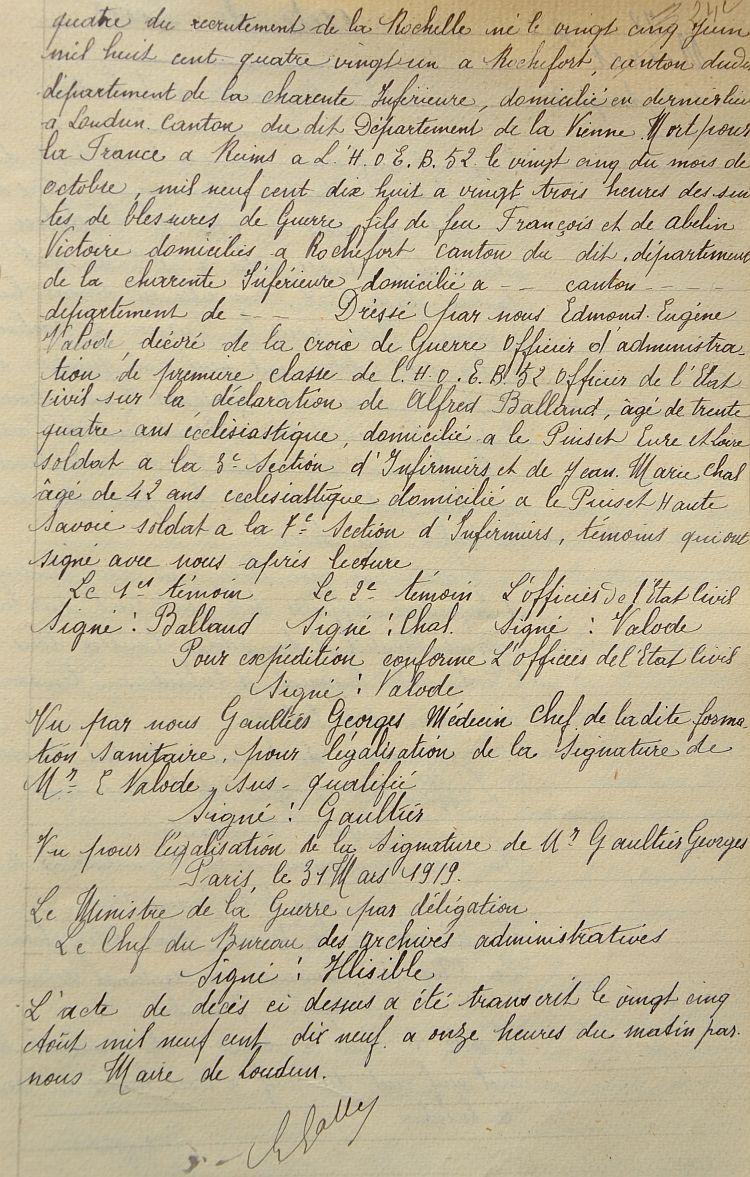 quatre du recrutement de la Rochelle né le vingt cinq juin
mil huit cent quatre vingt un a Rochefort, canton dudit
département de la charente Inférieure, domicilié en dernier lieu
a Loudun. Canton du dit Département de la Vienne. Mort pour
la France a Reims a L'H.O.E.B. 52 le vingt cinq du mois de
octobre, mil neuf cent dix huit a vingt trois heures des sui
tes de blessures de Guerre, fils de feu François et de abelin
Victoire domiciliés a Rochefort canton du dit département
de la charente Inférieure domicilié a - - canton - - - -
département de - - - Dréssé par nous Edmond. Eugène
Valode, décoré de la croix de Guerre Officier d'administra-
tion de premiere classe de l'H.O.E.B. 52 Officier de l'Etat
civil sur la déclaration de Alfred Balland, âgé de trente
quatre ans écclésiastique, domicilié a le Puiset Eure et Loire
soldat a la 3e Section d'Infirmiers et de Jean. Marie Chal
âgé de 42 ans ecclesiastique domicilié a le Puiset Haute
Savoie soldat a la 7e Section d'Infirmiers, témoins qui ont
signé avec nous après lecture
Le 1er témoin Le 2e témoin L'officier de l'Etat Civil
Signé : Balland Signé : Chal. Signé : Valode
Pour expédition conforme L'officier de l'Etat Civil
Signé : Valode
Vu par nous Gaultier Georges Médecin Chef de la dite forma-
tion sanitaire, pour légalisation de la Signature de
Mr E Valode sus - qualifié
Signé : Gaultier
Vu pour légalisation de la Signature de Mr Gaultier Georges
Paris, le 31 Mars 1919.
Le Ministre de la Guerre par délégation
Le Chef du Bureau des archives administratives
Signé : Illisible
L'acte de décès ci dessus a été transcrit le vingt cinq
Août mil neuf cent dix neuf a onze heures du matin par.
nous Maire de Loudun.